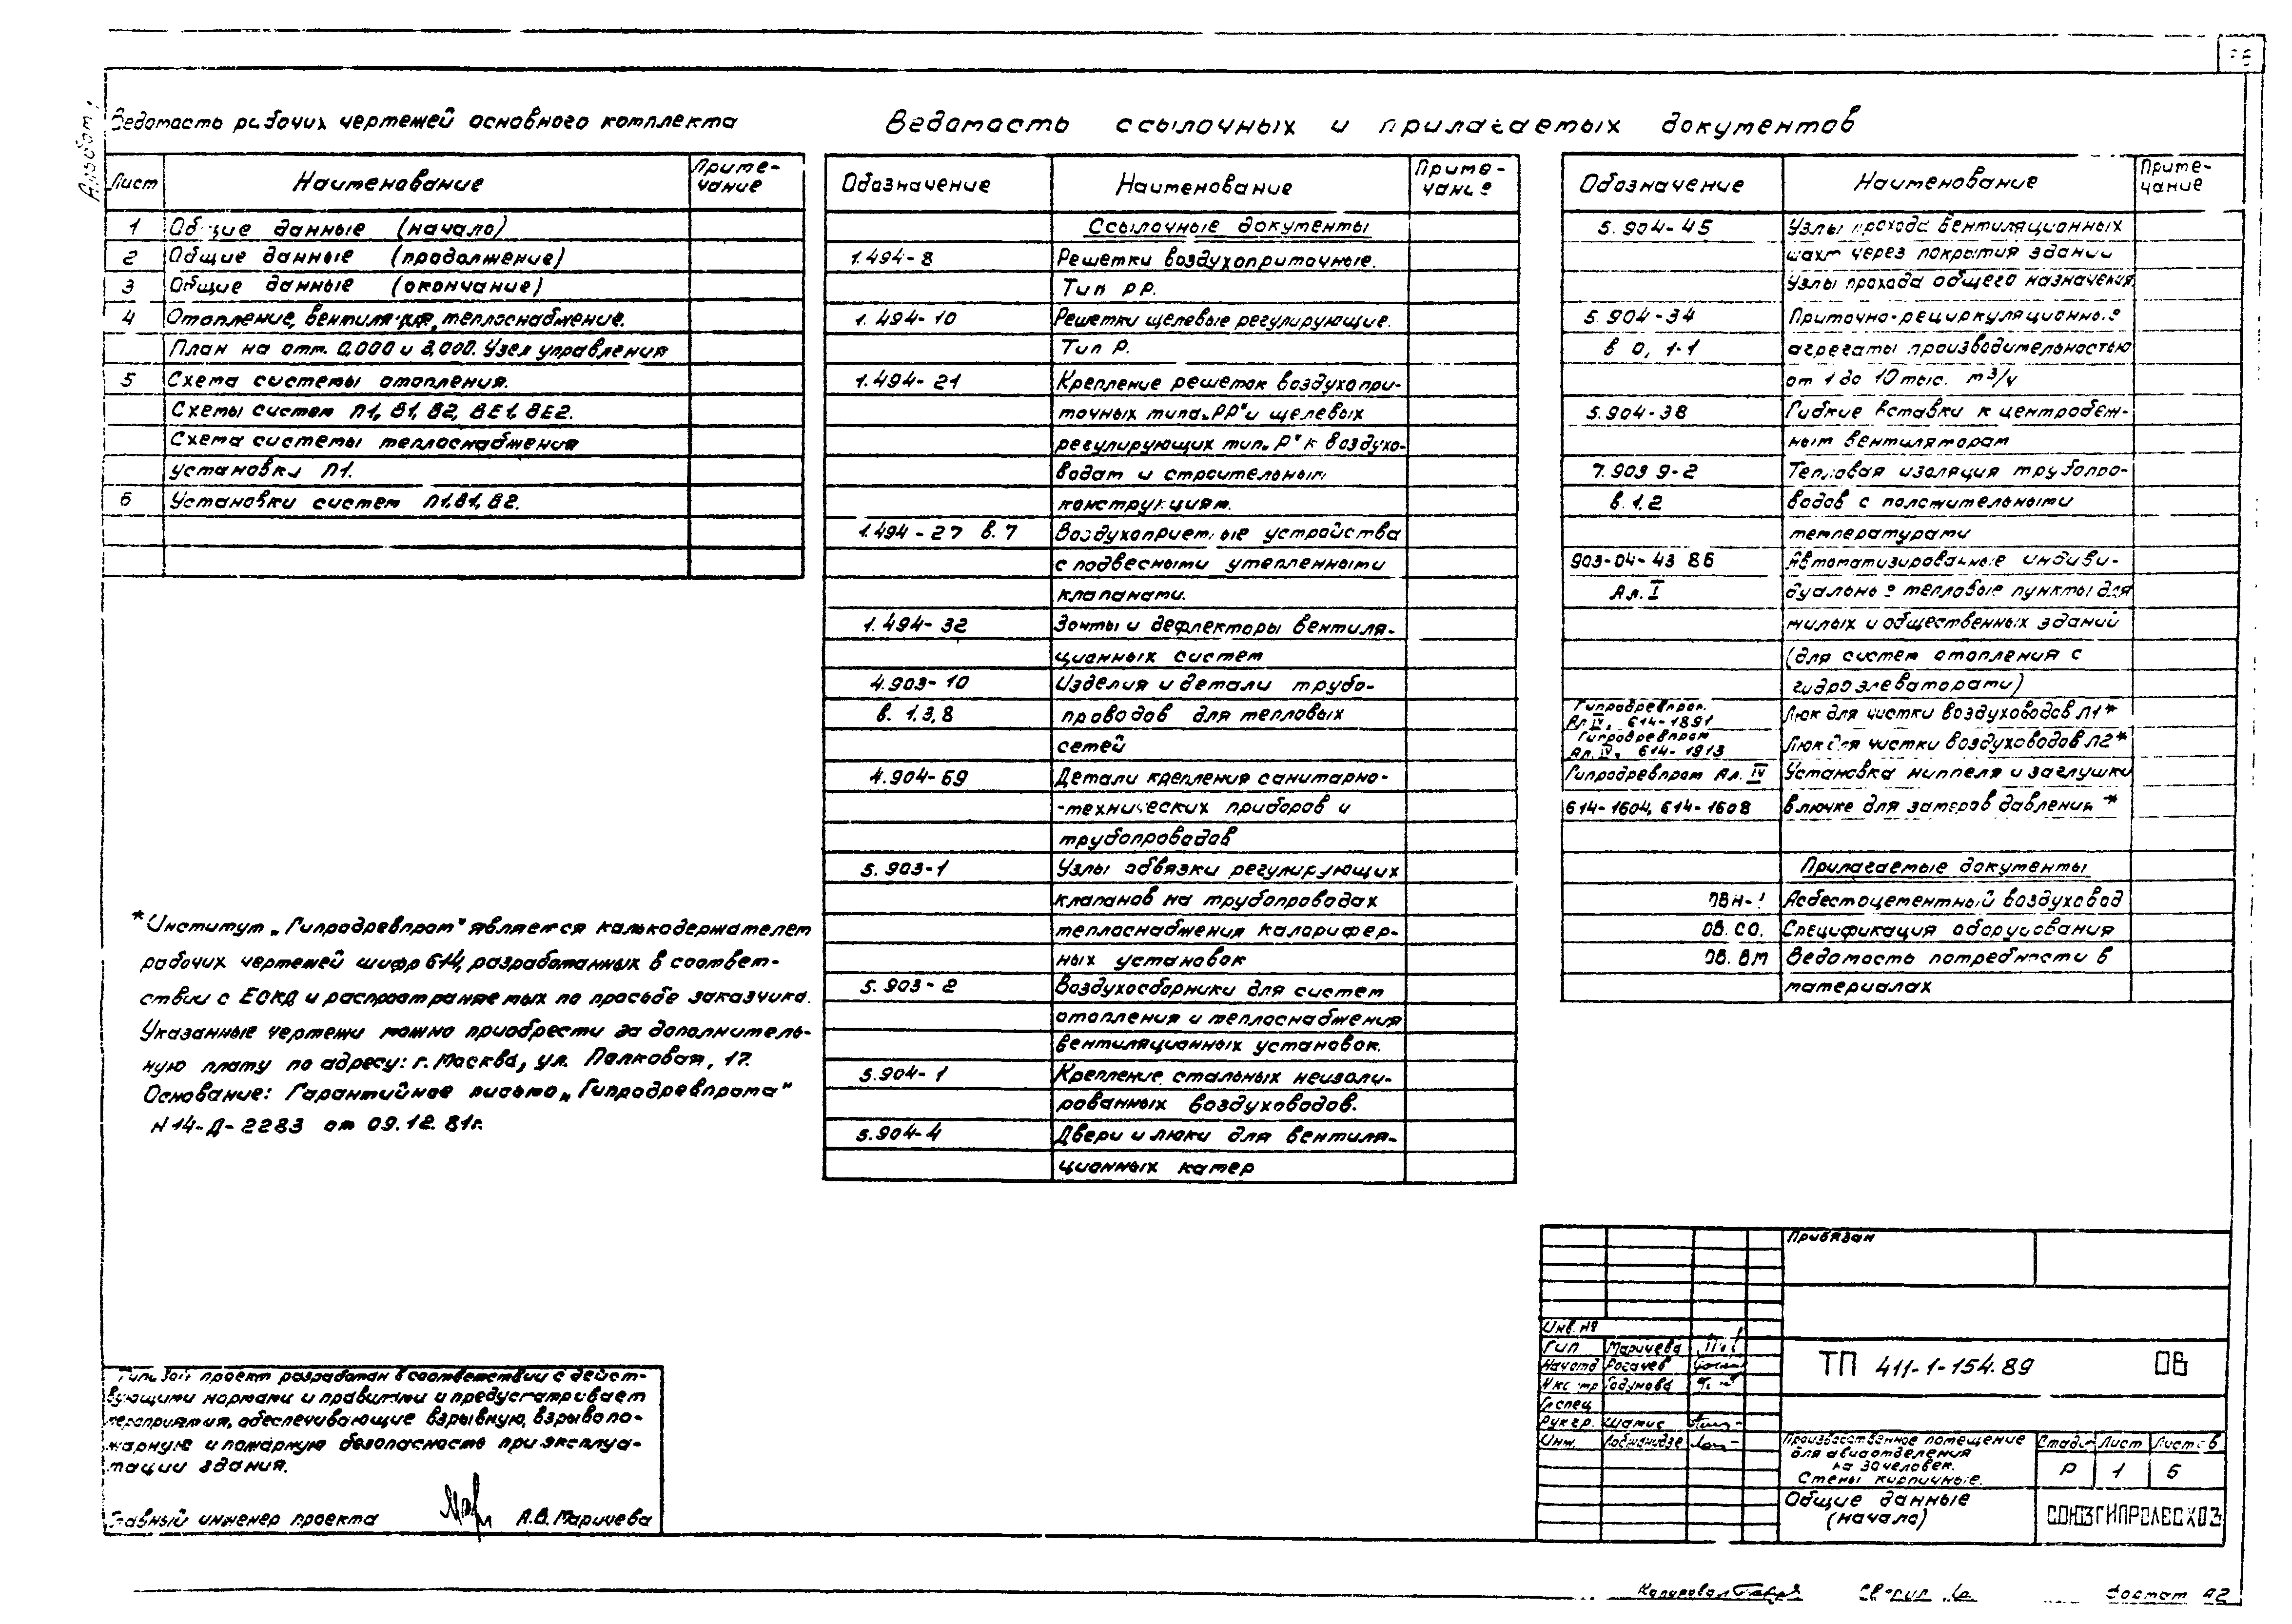 Альбом 1
Ведомость рабочих чертежей основного комплекта
Лист Наименование Приме-
чание
1 Общие данные (начало)
2 Общие данные (продолжение)
3 Общие данные (окончание)
4 Отопление, вентиляция, теплоснабжение.
План на отм. 0,000 и 3,000. Узел управления
5 Схема системы отопления.
Схемы систем П1, В1, В2, ВЕ1, ВЕ2.
Схема системы теплоснабжения
установки П1.
6 Установки систем П1, В1, В2.
* Институт „Гипродревпром" является калькодержателем
рабочих чертежей шифр 614, разработанных в соответ-
ствии с ЕСКД и распространяемых по просьбе заказчика.
Указанные чертежи можно приобрести за дополнитель-
ную плату по адресу: г. Москва, ул. Палковая, 17.
Основание: Гарантийное письмо „Гипродревпрома"
N 14-Д-2283 от 09.12.81г.
Типовой проект разработан в соответствии с дейст-
вующими нормами и правилами и предусматривает
мероприятия, обеспечивающие взрывную, взрывопо-
жарную и пожарную безопасность при эксплуа-
тации здания.
Главный инженер проекта А.В. Маричева
Ведомость ссылочных и прилагаемых документов
Обозначение Наименование Приме-
чание
Ссылочные документы
1.494-8 Решетки воздухоприточные.
Тип РР.
1.494-10 Решетки щелевые регулирующие.
Тип Р.
1.494-21 Крепление решеток воздухопри-
точных типа „РР" и щелевых
регулирующих тип „Р" к воздухо-
водам и строительным
конструкциям.
1.494-27 в.7 Воздухоприемные устройства
с подвесными утепленными
клапанами.
1.494-32 Зонты и дефлекторы вентиля-
ционных систем
4.903-10 Изделия и детали трубо-
в. 1,3,8 проводов для тепловых
сетей
4.904-69 Детали крепления санитарно-
-технических приборов и
трубопроводов
5.903-1 Узлы обвязки регулирующих
клапанов на трубопроводах
теплоснабжения калорифер-
ных установок
5.903-2 Воздухосборники для систем
отопления и теплоснабжения
вентиляционных установок.
5.904-1 Крепление стальных неизоли-
рованных воздуховодов.
5.904-4 Двери и люки для вентиля-
ционных камер
Обозначение Наименование Приме-
чание
5.904-45 Узлы прохода вентиляционных
шахт через покрытия зданий
Узлы прохода общего назначения
5.904-34 Приточно-рециркуляционные
в 0, 1-1 агрегаты производительностью
от 1 до 10 тыс. м3/ч
5.904-38 Гибкие вставки к центробеж-
ным вентиляторам
7.903 9-2 Тепловая изоляция трубопро-
в.1.2 водов с положительными
температурами
903-04-43 86 Автоматизированные индиви-
Ал. I дуальные тепловые пункты для
жилых и общественных зданий
(для систем отопления с
гидроэлеваторами)
Гипродревпром.
Ал IV, 614-1891 Люк для чистки воздуховодов Л1*
Гипродревпром
Ал. IV, 614-1913 Люк для чистки воздуховодов Л2*
Гипродревпром Ал. IV Установка ниппеля и заглушки
614-1604, 614-1608 в лючке для замеров давления *
Прилагаемые документы
ОВН-1 Асбестоцементный воздуховод
ОВ. СО. Спецификация оборудования
ОВ. ВМ Ведомость потребности в
материалах
Привязан
Инв. №
ГИП Маричева
Нач отд Рогачев
Н.контр Годунова
Гл.спец
Рук гр. Шамис
Инж.
ТП 411-1-154.89 ОВ
Производственное помещение
для авиаотделения
на 30 человек.
Стены кирпичные.
Стадия Лист Листов
Р 1 6
Общие данные
(начало)
СОЮЗГИПРОЛЕСХОЗ
Копировал Сверил Формат А2